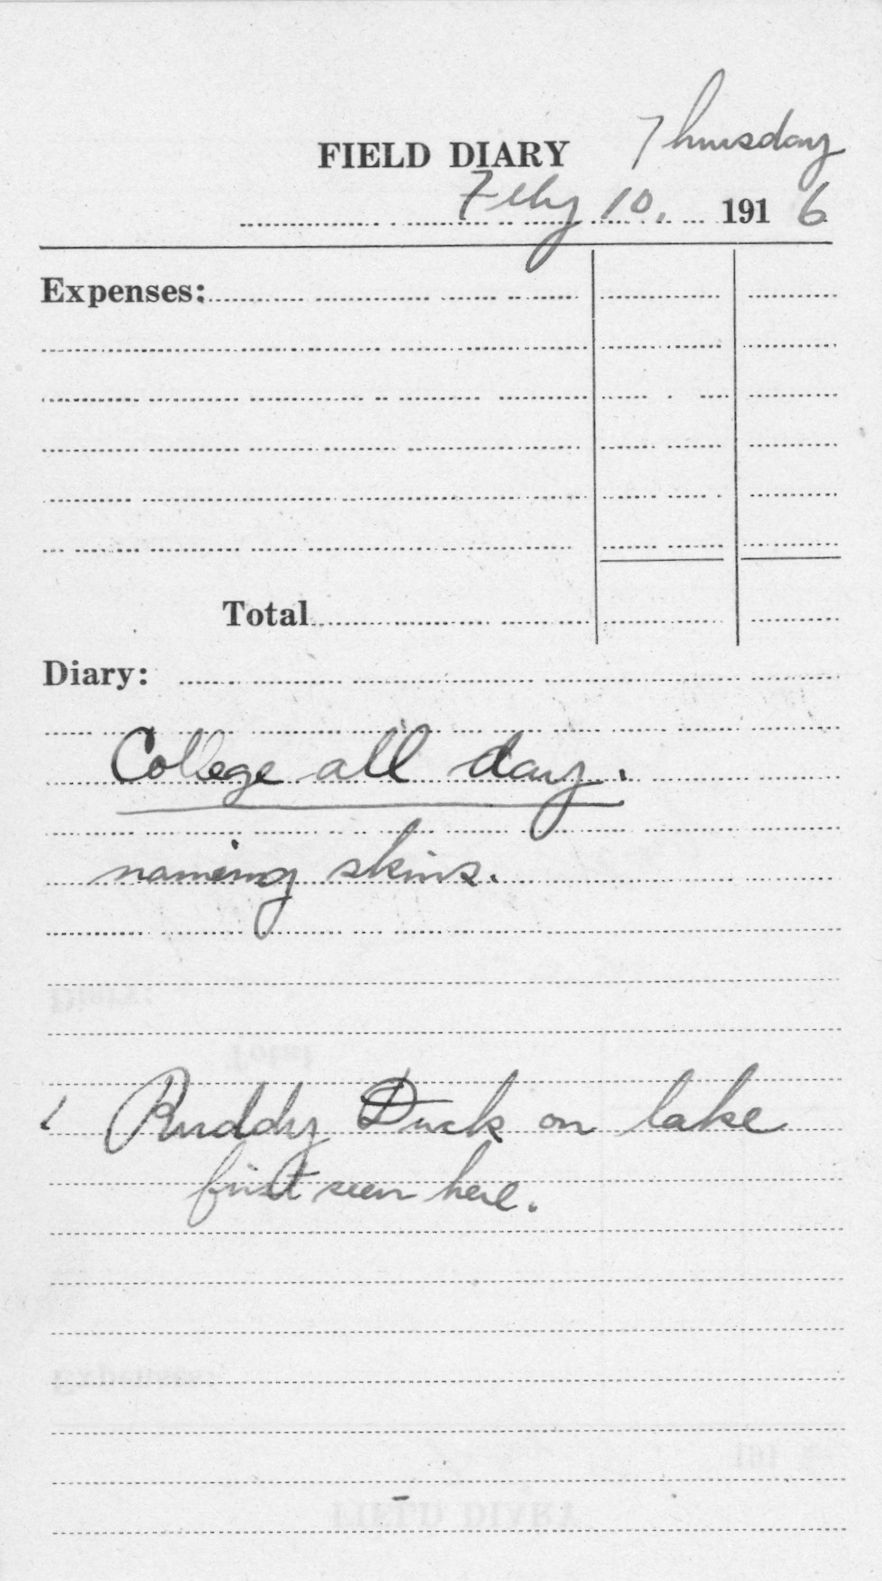 FIELD DIARY Thursday
Feby 10, 1916
Expenses:
Total
Diary:
College all day.
naming skins.
1 Ruddy Duck on lake
first seen here.